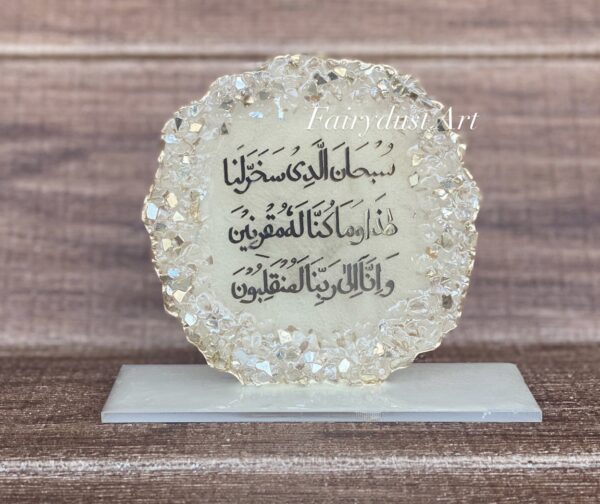 Fairydust Art
سُبْحَانَ الَّذِىْ سَخَّرَلَنَا
هٰذَا وَمَا كُنَّا لَهُ مُقْرِنِيْنَ
وَاِنَّا اِلىٰ رَبِّنَا لَمُنْقَلِبُوْنَ